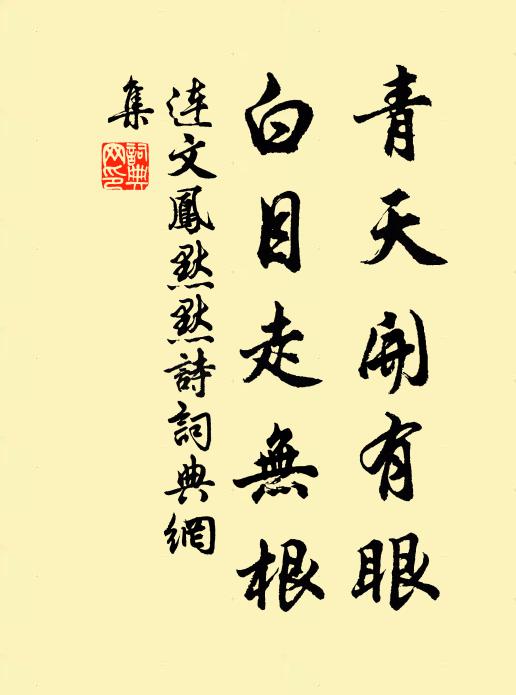 青天開有眼
白目走無根
連文鳳默默詩詞典網
集
詞典
網印